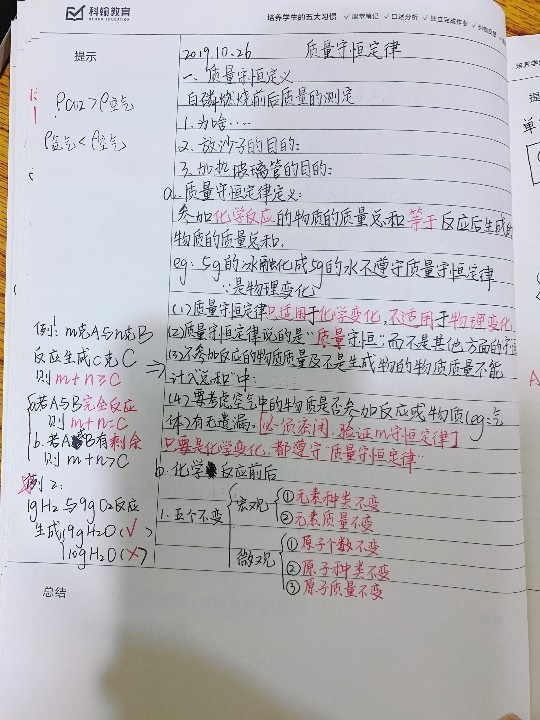 科翰教育
KEHAN EDUCATION
培养学生的五大习惯 ✓课堂笔记 ✓口述分析 ✓独立完成作业
提示
2019.10.26 质量守恒定律
一、质量守恒定义
白磷燃烧前后质量的测定
1.为啥……
2.放沙子的目的:
3.加热玻璃管的目的:
a.质量守恒定律定义:
参加化学反应的物质的质量总和等于反应后生成的
物质的质量总和.
eg: 5g的冰融化成5g的水不遵守质量守恒定律
∵是物理变化
(1)质量守恒定律只适用于化学变化,不适用于物理变化
(2)质量守恒定律说的是"质量守恒"而不是其他方面的守恒
(3)不参加反应的物质质量及不是生成物的物质质量不能
计入"总和"中:
(4)要考虑空气中的物质是否参加反应或物质(eg:气
体)有无遗漏.
只要是化学变化,都遵守质量守恒定律
b.化学反应前后
1.五个不变
宏观
①元素种类不变
②元素质量不变
微观
①原子个数不变
②原子种类不变
③原子质量不变
ρ空气
ρ空气<ρ空气
例:m克A与n克B
反应生成C克C
则m+n≥C
若A与B完全反应
则m+n=C
b.若AB有剩余
则m+n>C
例2:
1gH2与9gO2反应
生成9gH2O(✓)
10gH2O(×)
总结